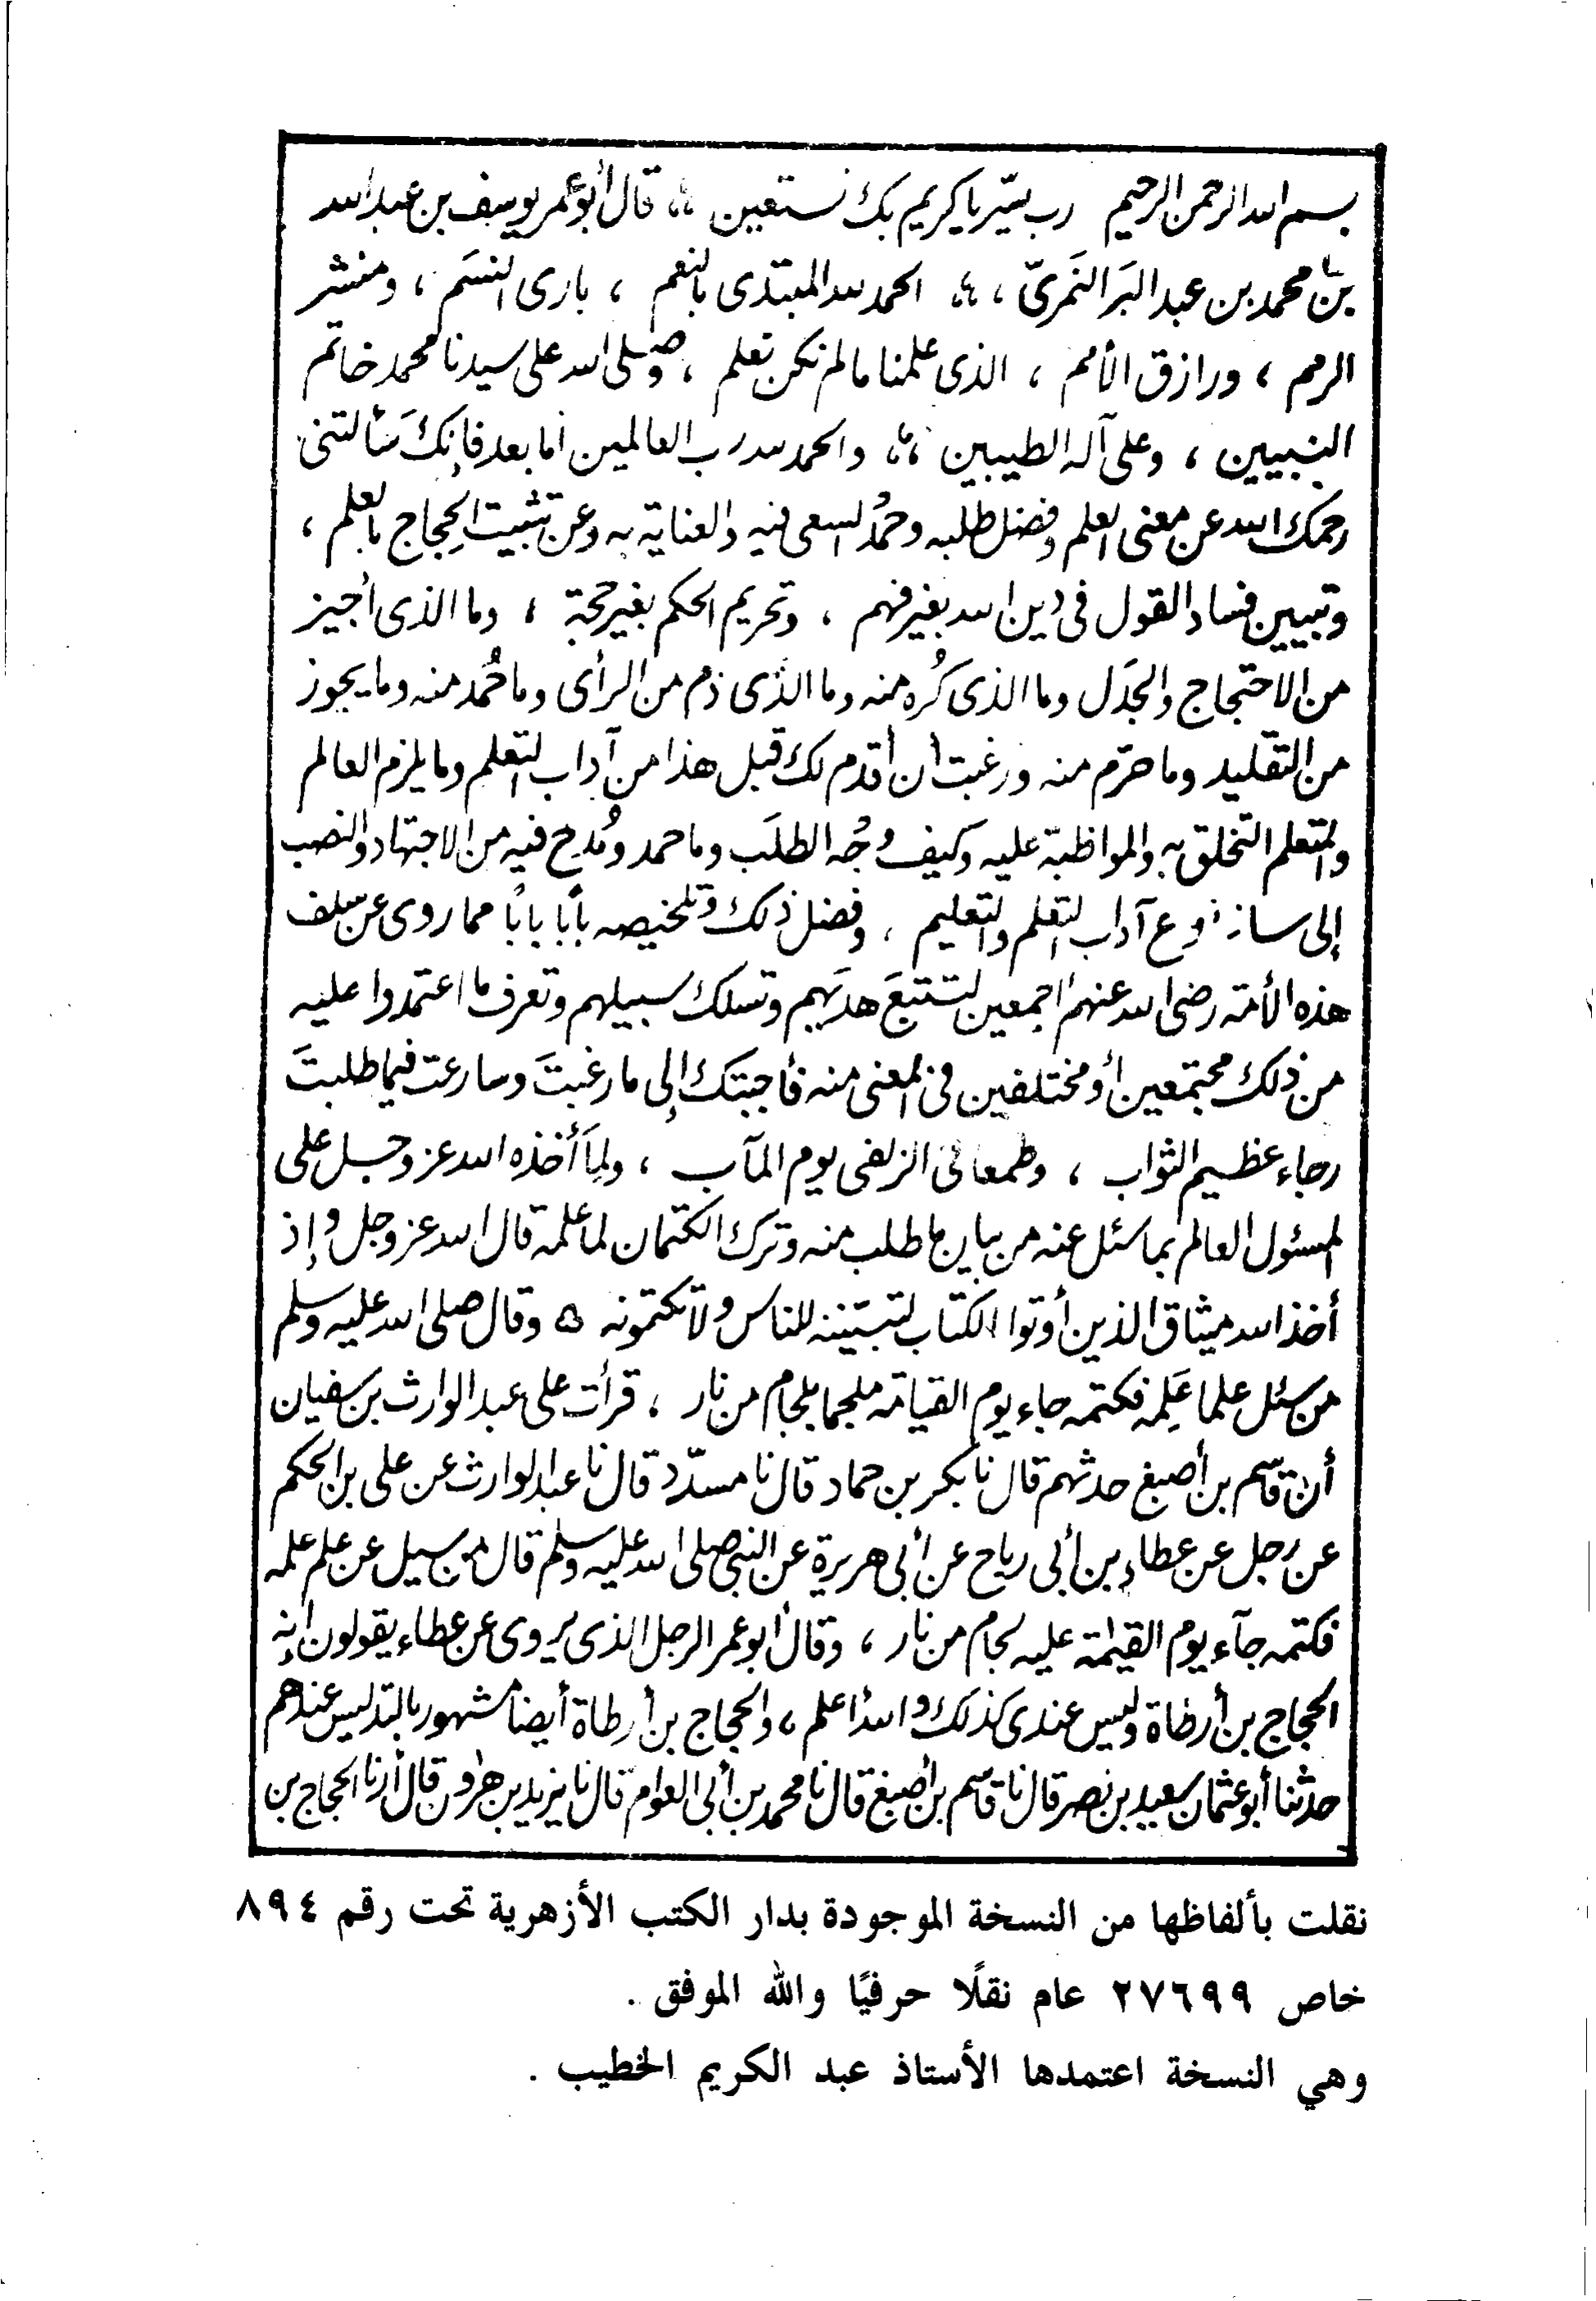 بسم الله الرحمن الرحيم رب يسّر يا كريم بك نستعين ؛؛ قال أبو عمر يوسف بن عبد الله
بن محمد بن عبد البَر النَمَرىّ ، ؛؛ الحمد لله المبتدى بالنعم ، بارى النسَم ، ومنشر
الرمم ، ورازق الأمم ، الذى علمنا ما لم نكن نعلم ، وصلى الله على سيدنا محمد خاتم
النبيين ، وعلى آله الطيبين ؛؛ والحمد لله رب العالمين أما بعد فإنكَ سَألتنى
رحمك الله عن معنى العلم وفضل طلبه وحمُد السعى فيه والعناية به وعن تثبيت الحِجاج بالعلم ،
وتبيين فساد القول فى دين الله بغير فهم ، وتحريم الحكم بغير حجة ، وما الذى أجيز
من الاحتجاج والجدَل وما الذى كُره منه وما الذى ذم من الرأى وما حُمد منه وما يجوز
من التقليد وما حرّم منه ورغبت أن أقدم لك قبل هذا من آداب التعلم وما يلزم العالم
والمتعلم التخلق به والمواظبة عليه وكيف وُجُه الطلَب وما حمد ومُدح فيه من الاجتهاد والنصب
إلى سائر نوع آداب التعلم والتعليم ، وفضل ذلك وتلخيصه بابًا بابًا مما روى عن سلف
هذه الأمة رضى الله عنهم أجمعين لتتبعَ هديَهم وتسلك سبيلهم وتعرف ما اعتمدوا عليه
من ذلك مجتمعين أو مختلفين فى المعنى منه فأجبتك إلى ما رغبتَ وسارعت فيما طلبتَ
رجاء عظيم الثواب ، وطمعا فى الزلفى يوم المآب ، ولِمَا أخذه الله عز وجل على
المسئول العالم بما سئل عنه من بيان ما طلب منه وترك الكتمان لما علمه قال الله عز وجل وإذ
أخذ الله ميثاق الذين أوتوا الكتاب لتبيّننه للناس ولا تكتمونه ه وقال صلى الله عليه وسلم
من سئل علما عَلِمه فكتمه جاء يوم القيامة ملجما بلجام من نار ، قرأت على عبد الوارث بن سفيان
أن قاسم بن أصبغ حدثهم قال نا بكر بن حماد قال نا مسدّد قال نا عبد الوارث عن على بن الحكم
عن رجل عن عطاء بن أبى رباح عن أبى هريرة عن النبى صلى الله عليه وسلم قال من سيل عن علم علمه
فكتمه جآء يوم القيٰمة عليه لجام من نار ، وقال أبو عمر الرجل الذى يروى عن عطاء يقولون إنه
الحجاج بن أرطاة وليس عندى كذلك والله أعلم ، والحجاج بن أرطاة أيضا مشهور بالتدليس عندهم
حدثنا أبو عثمان سعيد بن نصر قال نا قاسم بن أصبغ قال نا محمد بن أبى العوام قال نا يزيد بن هٰرون قال أرنا الحجاج بن
نقلت بألفاظها من النسخة الموجودة بدار الكتب الأزهرية تحت رقم ٨٩٤
خاص ٢٧٦٩٩ عام نقلًا حرفيًا والله الموفق .
وهي النسخة اعتمدها الأستاذ عبد الكريم الخطيب .